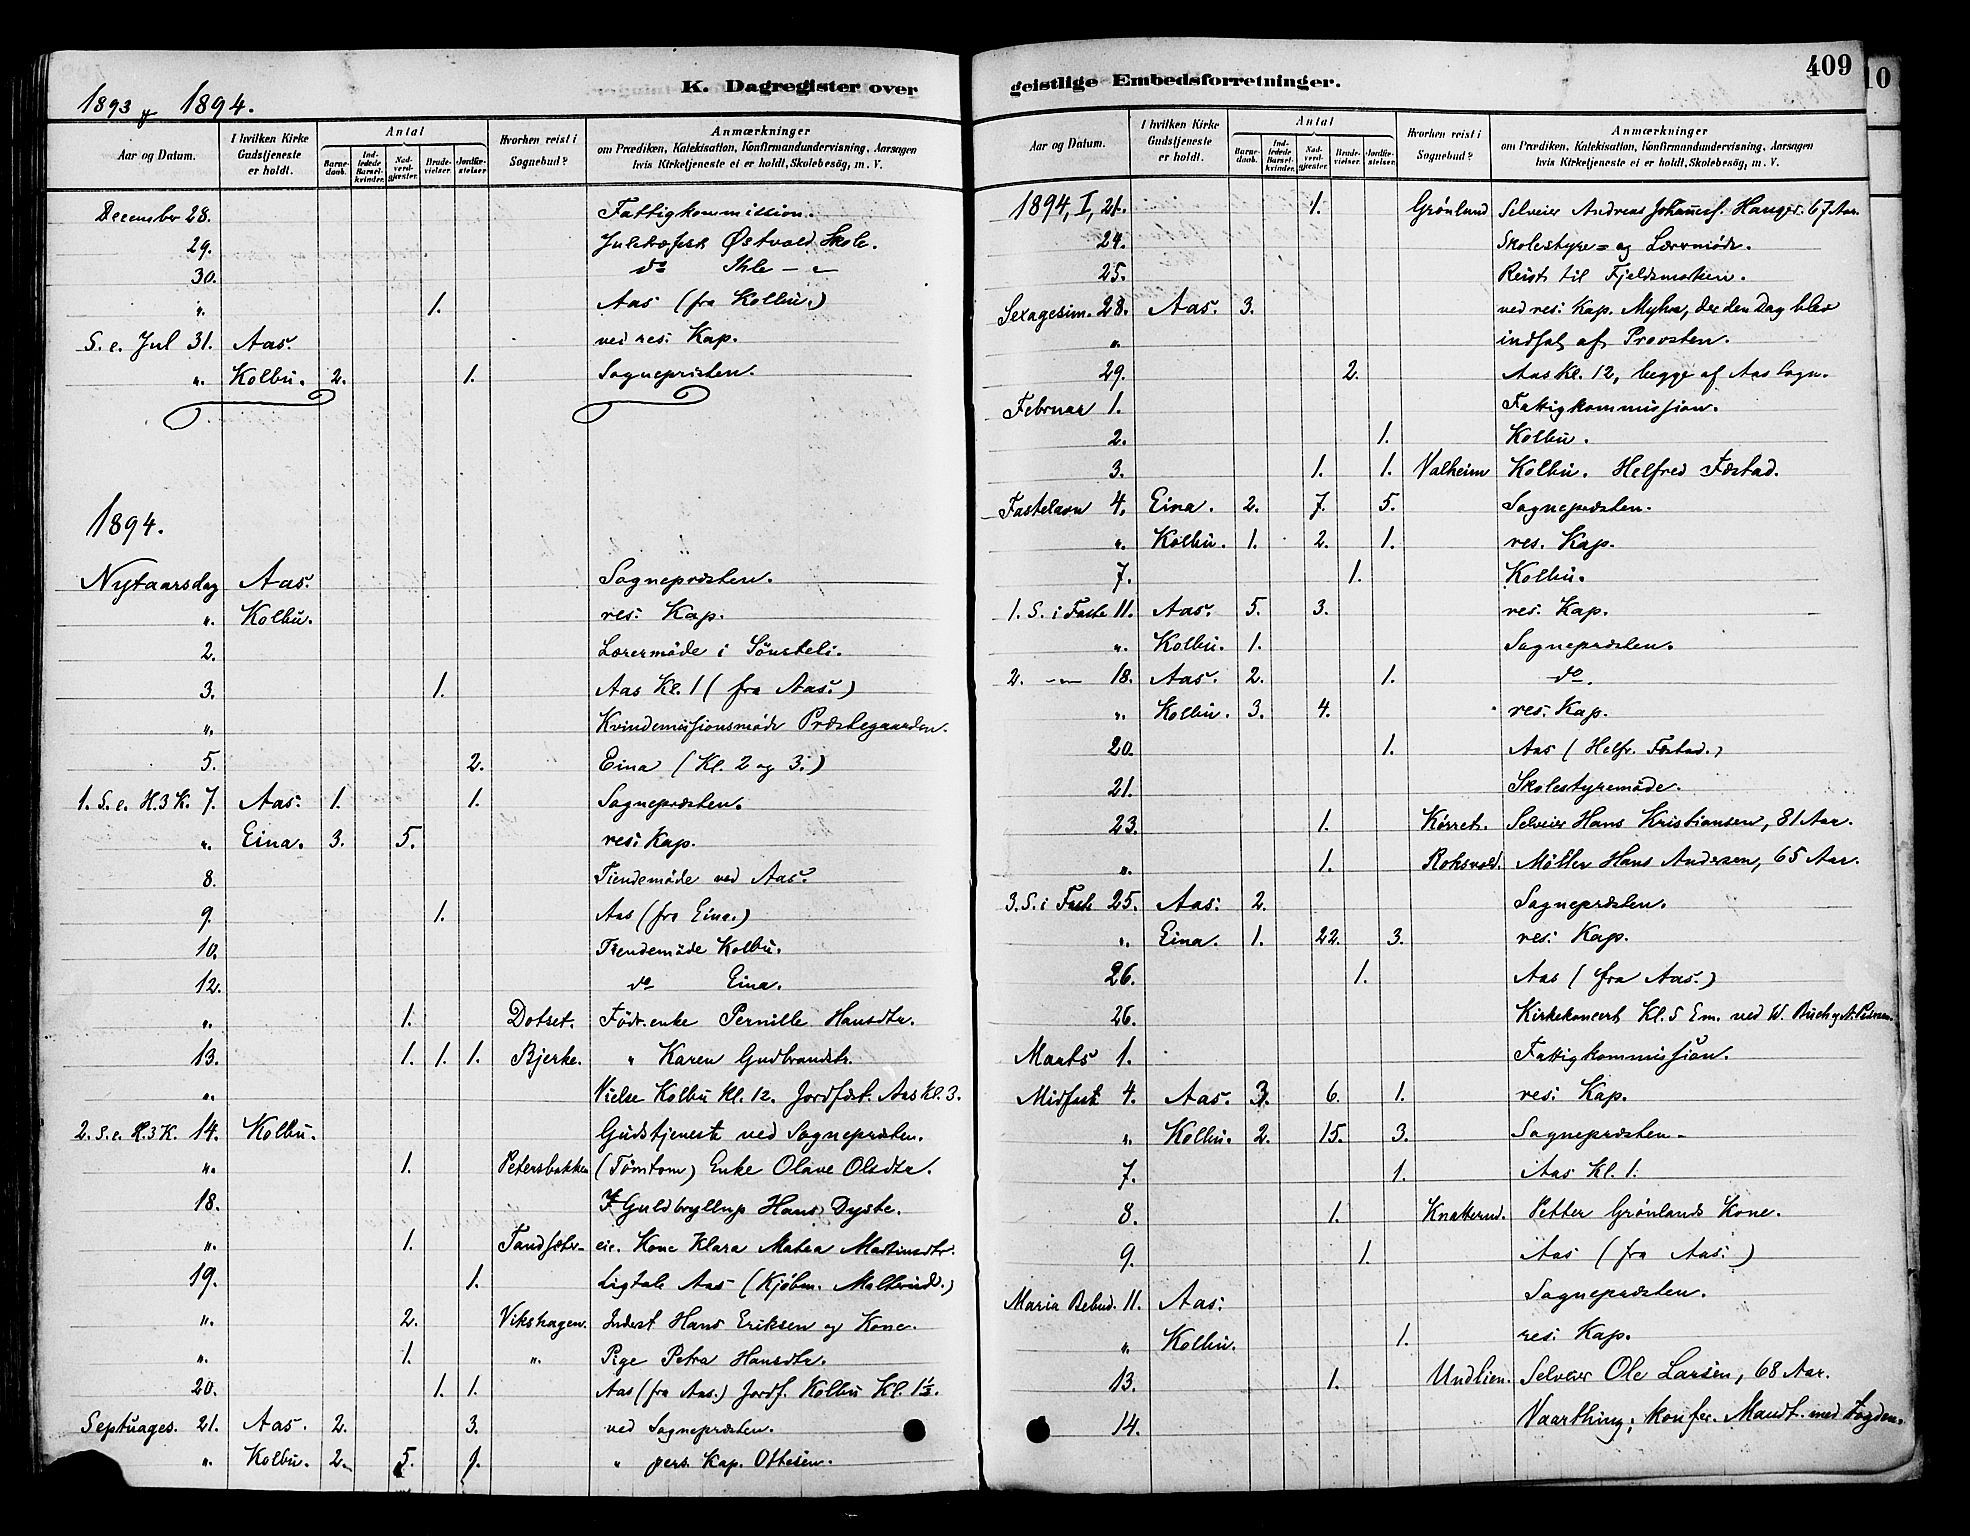 409
10
K. Dagregister over
1893 & 1894.
Aar og Datum. I hvilken Kirke Gudstjeneste er holdt. Antal Barnedaab. Indledede Barselkvinder. Nadverdgjæster. Brudevielser. Jordfæstelser. Hvorhen reist i Sognebud? Anmærkninger om Prædiken, Katekisation, Konfirmandundervisning, Aarsagen hvis Kirketjeneste ei er holdt, Skolebesög, m. V.
December 28. Fattigkommission.
29. Juletræfest Østvold Skole.
30. do Ihle - "
". 1. Aas (fra Kolbu.)
S. e. Jul 31. Aas. ved res. Kap.
". Kolbu. 2. 1. Sognepresten.
1894.
Nytaarsdag Aas. Sognepræsten.
". Kolbu. res. Kap.
2. Lærermöde i Sönsteli.
3. 1. Aas Kl. 1 (fra Aas.)
". Kvindemissionsmöde Præstegaarden.
5. 2. Eina (Kl. 2 og 3.)
1. S. e. H. 3 K. 7. Aas. 1. 1. Sognepræsten.
". Eina. 3. 5. res. Kap.
8. Tiendemöde ved Aas.
9. 1. Aas (fra Eina.)
10. Tiendemöde Kolbu.
12. do Eina.
". 1. Dotset. Födr.enke Pernille Hansdtr.
13. 1. 1. 1. Bjerke. " Karen Gudbrandsdtr.
". Vielse Kolbu Kl. 12. Jordfæst. Aas Kl. 3.
2. S. e. H. 3 K. 14. Kolbu. Gudstjeneste ved Sognepræsten.
". 1. Petersbakken (Tömtom) Enke Olave Olsdtr.
18. Guldbryllup Hans Dyste.
". 1. eie. Kone Klara Matea Martinsdtr.
19. 1. Ligtale Aas (Kjøbm. Melbründ.)
". 2. Vikshagen. Inderst Hans Eriksen og Kone.
". 1. ". Pige Petra Hansdtr.
20. 1. 1. Aas (fra Aas.) Jordf. Kolbu Kl. 1½.
Septuages. 21. Aas. 2. 3. ved Sognepræsten.
". Kolbu. 2. 5. 1. " pers. Kap. Ottesen.
geistlige Embedsforretninger.
Aar og Datum. I hvilken Kirke Gudstjeneste er holdt. Antal Barnedaab. Indledede Barselkvinder. Nadverdgjæster. Brudevielser. Jordfæstelser. Hvorhen reist i Sognebud? Anmærkninger om Prædiken, Katekisation, Konfirmandundervisning, Aarsagen hvis Kirketjeneste ei er holdt, Skolebesög, m. V.
1894, I, 21. 1. Grønlund Selveier Andreas Johannes. Hanger. 67 Aar.
24. Skolestyre= og Lærermöde.
25. Reist til Fjeldmarken.
Sexagesim. 28. Aas. 3. ved res. Kap. Myhre, der den Dag blev
". indsat af Provsten.
29. 2. Aas Kl. 12, begge af Aas Sogn.
Februar 1. Fattigkommission.
2. 1. Kolbu.
3. 1. 1. Valheim Kolbu. Helfred Fæstad.
Fastelavn 4. Eina. 2. 7. 5. Sognepræsten.
". Kolbu. 1. 2. 1. res. Kap.
7. 1. Kolbu.
1. S. i Faste 11. Aas. 5. 3. res. Kap.
". Kolbu. 1. Sognepræsten.
2. -"- 18. Aas. 2. 1. do.
". Kolbu. 3. 4. res. Kap.
20. 1. Aas (Helfr. Fæstad.)
21. Skolestyremöde.
23. 1. Kørret. Selveier Hans Kristiansen, 81 Aar.
". 1. Roksvold. Møller Hans Andersen, 65 Aar.
3. S. i Faste 25. Aas. 2. Sognepræsten.
". Eina. 1. 22. 3. res. Kap.
26. 1. Aas (fra Aas.)
26. Kirkekoncert Kl. 5 Em. ved W. Buch og A. Pedersen.
Marts 1. Fattigkommission.
Midfast 4. Aas. 3. 6. 1. res. Kap.
". Kolbu. 2. 15. 3. Sognepræsten.
7. 1. Aas Kl. 1.
8. 1. Knatterud. Petter Grønlands Kone.
9. 1. Aas (fra Aas.)
Maria Bebud. 11. Aas. Sognepræsten.
". Kolbu. 1. res. Kap.
13. 1. Undlien. Selveier Ole Larsen, 68 Aar.
14. Vaarthing, konfer. Mandt. med Fogden.